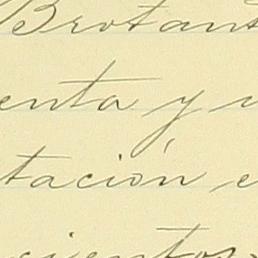 Brotant
enta y u
tación e
cientos